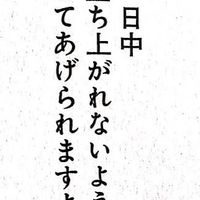 日中
立ち上がれないよう
てあげられますよ